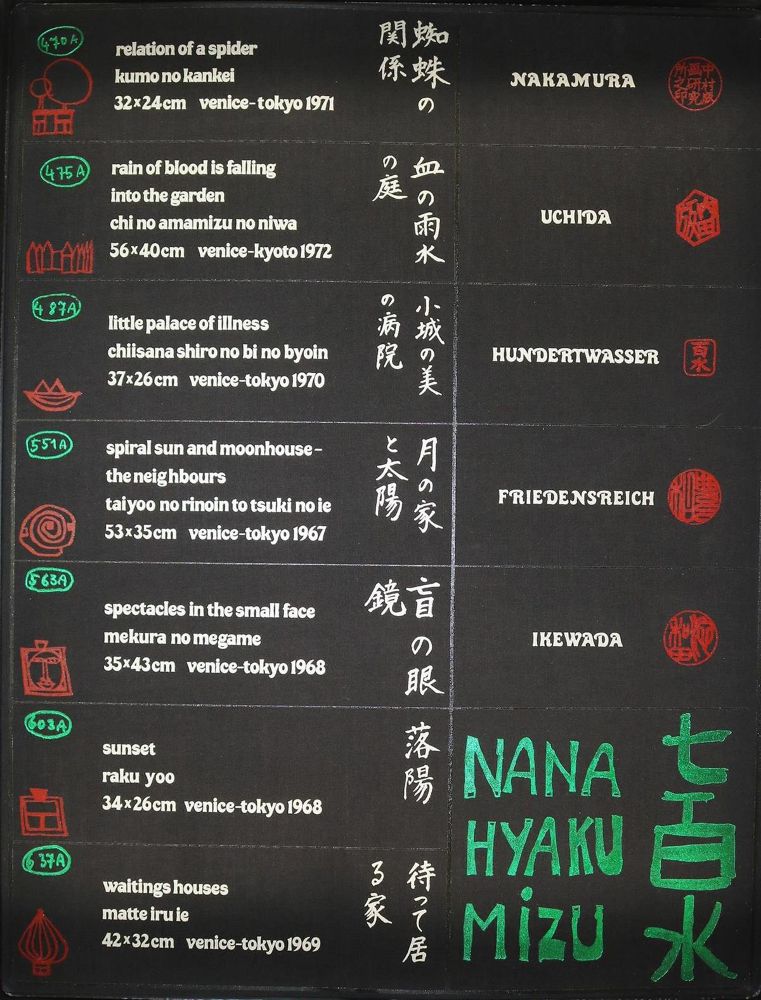 470A
relation of a spider
kumo no kankei
32x24cm venice-tokyo 1971
蜘蛛の
関係
NAKAMURA
475A
rain of blood is falling
into the garden
chi no amamizu no niwa
56x40cm venice-kyoto 1972
血の雨水
の庭
UCHIDA
487A
little palace of illness
chiisana shiro no bi no byoin
37x26cm venice-tokyo 1970
小城の美
の病院
HUNDERTWASSER
百水
551A
spiral sun and moonhouse-
the neighbours
taiyoo no rinoin to tsuki no ie
53x35cm venice-tokyo 1967
月の家
と太陽
FRIEDENSREICH
563A
spectacles in the small face
mekura no megame
35x43cm venice-tokyo 1968
盲の眼
鏡
IKEWADA
603A
sunset
raku yoo
34x26cm venice-tokyo 1968
落陽
637A
waitings houses
matte iru ie
42x32cm venice-tokyo 1969
待って居
る家
NANA
HYAKU
MIZU
七百水